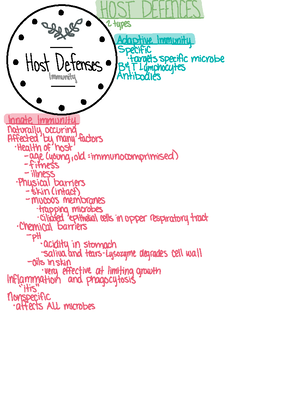 HOST DEFENCES
2 types
Host Defenses
Immunity
Adaptive Immunity
Specific
·targets specific microbe
B+T Lymphocytes
Antibodies
Innate Immunity
Naturally occuring
Affected by many factors
·Health of host
-age (young, old =immunocomprimised)
-fitness
-illness
·Physical barriers
-Skin (intact)
-mucous membranes
·trapping microbes
·ciliated epithelial cells in upper respiratory tract
·Chemical barriers
-pH
·acidity in stomach
·saliva and tears-Lysozyme degrades cell wall
-oils in skin
·very effective at limiting growth
Inflammation and phagocytosis
·"itis"
Nonspecific
·affects ALL microbes